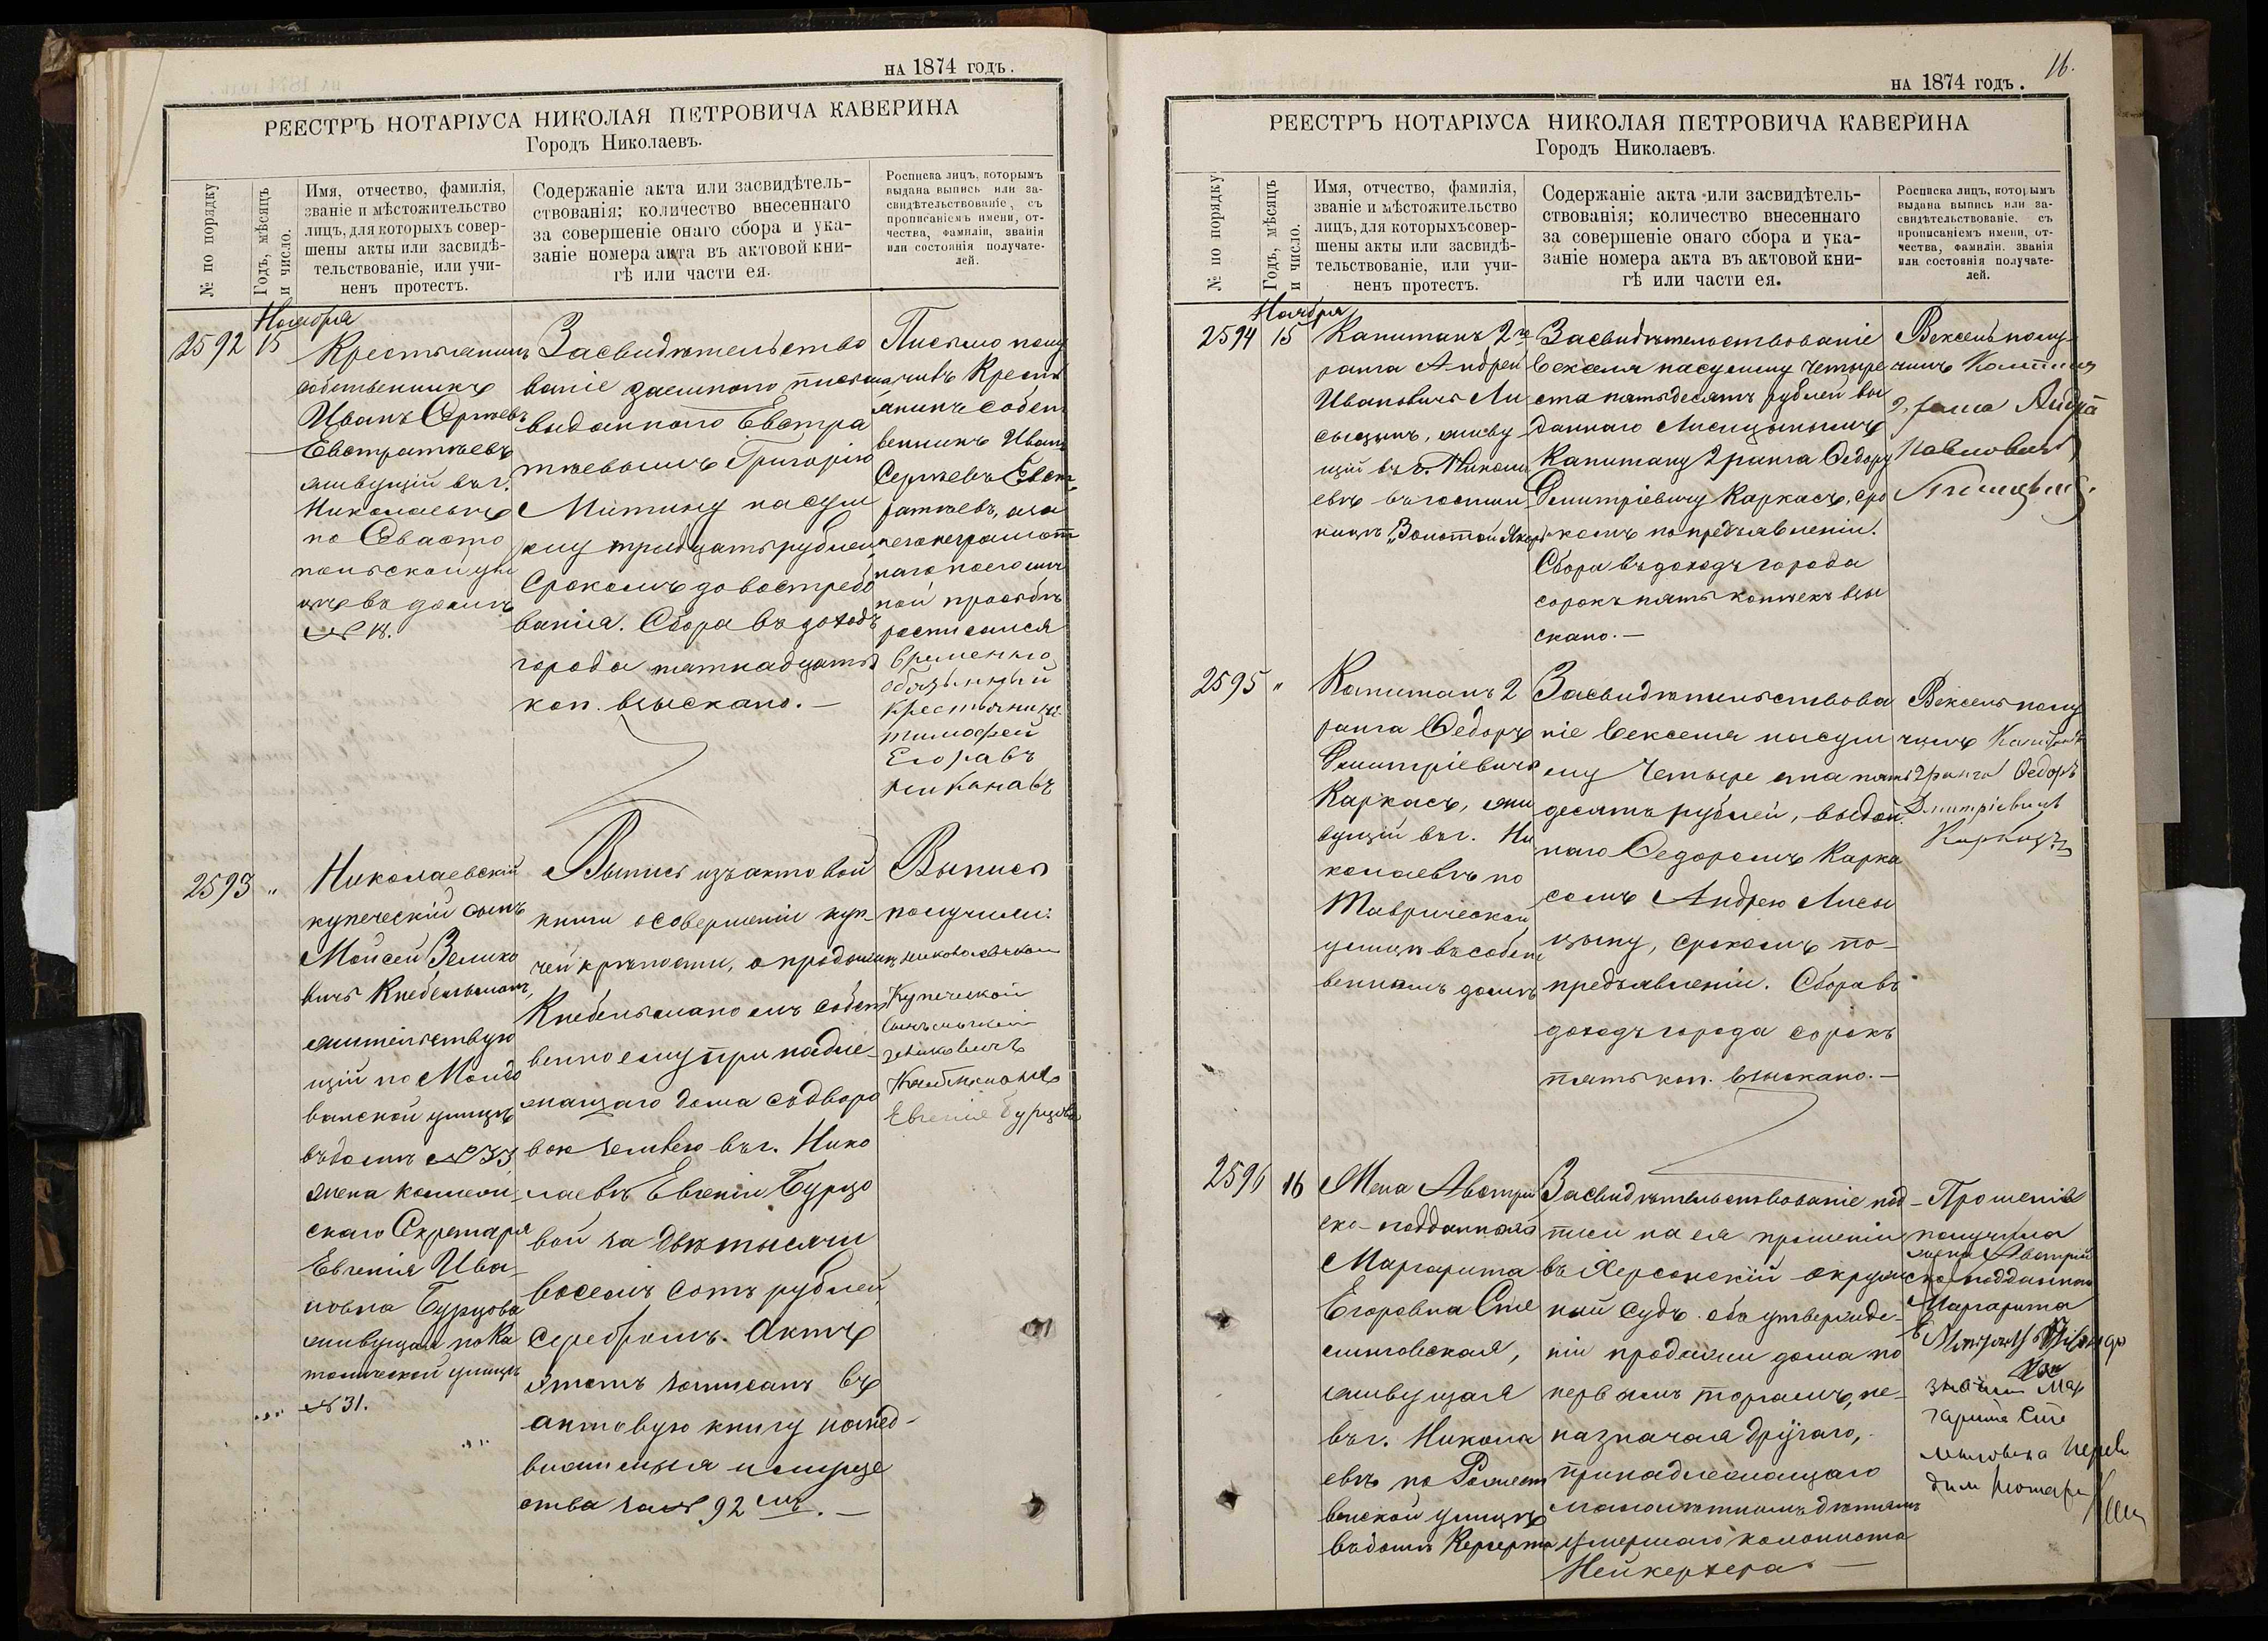 на 1874 годъ.
РЕЕСТРЪ НОТАРІУСА НИКОЛАЯ ПЕТРОВИЧА КАВЕРИНА
Городъ Николаевъ.
№ по порядку
Годъ, мѣсяцъ
и число.
Имя, отчество, фамилія,
званіе и мѣстожительство
лицъ, для которыхъ совер-
шены акты или засвидѣ-
тельствованіе, или учи-
ненъ протестъ.
Содержаніе акта или засвидѣтель-
ствованія; количество внесеннаго
за совершеніе онаго сбора и ука-
заніе номера акта въ актовой кни-
гѣ или части ея.
Росписка лицъ, которымъ
выдана выпись или за-
свидѣтельствованіе, съ
прописаніемъ имени, от-
чества, фамиліи, званія
или состоянія получате-
лей.
Ноября
2592
15
Крестьянинъ
собственникъ
Иванъ Сергѣевъ
Евстратѣевъ
живущій въ г.
Николаевѣ
по Севасто
польской ули
цѣ въ домѣ
№ 18.
Засвидѣтельство
ваніе заемнаго письма
выданного Евстра
тѣевымъ Григорію
Митину на сум
му тридцать рублей,
срокомъ до востребо
ванія. Сбора въ доходъ
города пятнадцать
коп. взыскано. —
Письмо полу
чивъ Кресть
янинъ собст
венникъ Иванъ
Сергѣевъ Евст
ратѣевъ, а за
него неграмот
наго по его лич
ной просьбѣ
росписался
временно
обязанный
крестьянинъ
тимофей
Егоравъ
2593
"
Николаевскій
купеческій сынъ
Мойсей Зелико
вичъ Кнебельманъ,
жительствую
щій по Молдо
ванской улицѣ
въ домѣ № 33
жена коллежс
скаго Секретаря
Евгенія Ива-
новна Бурцова
живущая по Ка
толической улицѣ
№ 31.
Выпись изъ актовой
книги о совершеніи куп-
чей крѣпости, о продажѣ
Кнебельманомъ собст
венно ему принадле-
жащаго дома съ дворо
вою землею въ г. Нико
лаевѣ Евгеніи Бурцо
вой за двѣ тысячи
восемь сотъ рублей
серебромъ. Актъ
этотъ записанъ въ
актовую книгу на нед-
вижимыя имуще
ства за № 92 мъ. —
Выпись
получили:
николаевской
Купеческой
зеликовичъ
Кнебельманъ
Евгенія Бурцова
16.
на 1874 годъ.
РЕЕСТРЪ НОТАРІУСА НИКОЛАЯ ПЕТРОВИЧА КАВЕРИНА
Городъ Николаевъ.
№ по порядку
Годъ, мѣсяцъ
и число.
Имя, отчество, фамилія,
званіе и мѣстожительство
лицъ, для которыхъ совер-
шены акты или засвидѣ-
тельствованіе, или учи-
ненъ протестъ.
Содержаніе акта или засвидѣтель-
ствованія; количество внесеннаго
за совершеніе онаго сбора и ука-
заніе номера акта въ актовой кни-
гѣ или части ея.
Росписка лицъ, которымъ
выдана выпись или за-
свидѣтельствованіе, съ
прописаніемъ имени, от-
чества, фамиліи, званія
или состоянія получате-
лей.
Ноября
2594
15
Капитанъ 2го
ранга Андрей
Ивановичъ Ли
сыцынъ, живу
щій въ г. Никола
евѣ въ гостин
ницѣ "Золотой Якорь"
Засвидѣтельствованіе
векселя на сумму четыре
ста пятьдесятъ рублей вы
даннаго Лисицынымъ
Капитану 2 ранга Федору
Дмитріевичу Каркасъ, сро
комъ по предъявленіи.
Сбора въ доходъ города
сорокъ пять копѣекъ взы
скано. —
Вексель полу-
чилъ Капитанъ
2 ранга Андрей
2595
"
Капитанъ 2
ранга Федоръ
Дмитріевичъ
Каркасъ, жи
вущій въ г. Ни
колаевѣ по
Таврической
улицѣ въ собст
венномъ домѣ
Засвидѣтельствова
ніе векселя на сум
му четыре ста пять
десятъ рублей, выдан
наго Федоромъ Карка
сомъ Андрею Лисы
цыну, срокомъ по-
предъявленіи. Сбора въ
доходъ города сорокъ
пять коп. взыскано. —
Вексель полу
чилъ Капитанъ
2 ранга Федоръ
Дмитріевичъ
Каркасъ
2596
16
Жена Австрій
ско-подданнаго
Маргарита
Егоровна Сте
живущая
въ г. Никола
евѣ по Рождест
венской улицѣ
въ домѣ
Засвидѣтельствованіе под-
писи на ея прошеніи
въ Херсонскій окруж
ный судъ объ утвержде-
ніи продажи дома по
первымъ торгамъ, не-
назначая другаго,
принадлежащаго
малолѣтнимъ дѣтямъ
умершаго колониста
Нейкерхера. —
Прошеніе
получила
жена Австрій
ско подданнаго
Маргарита